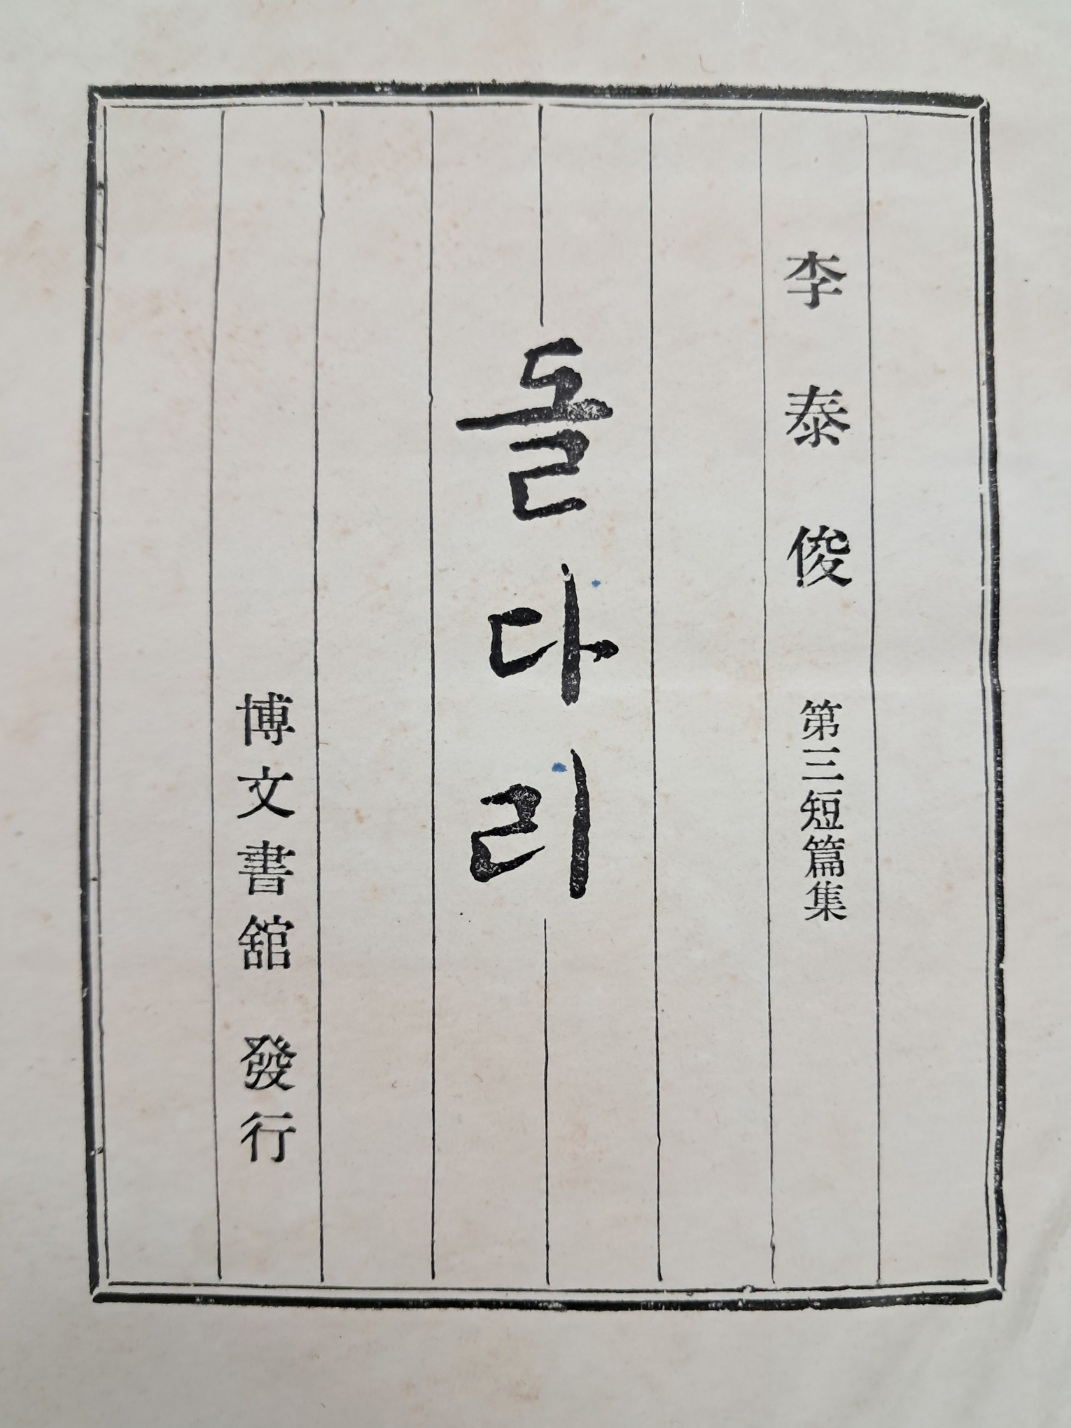 李泰俊 第三短篇集
돌다리
博文書舘 發行